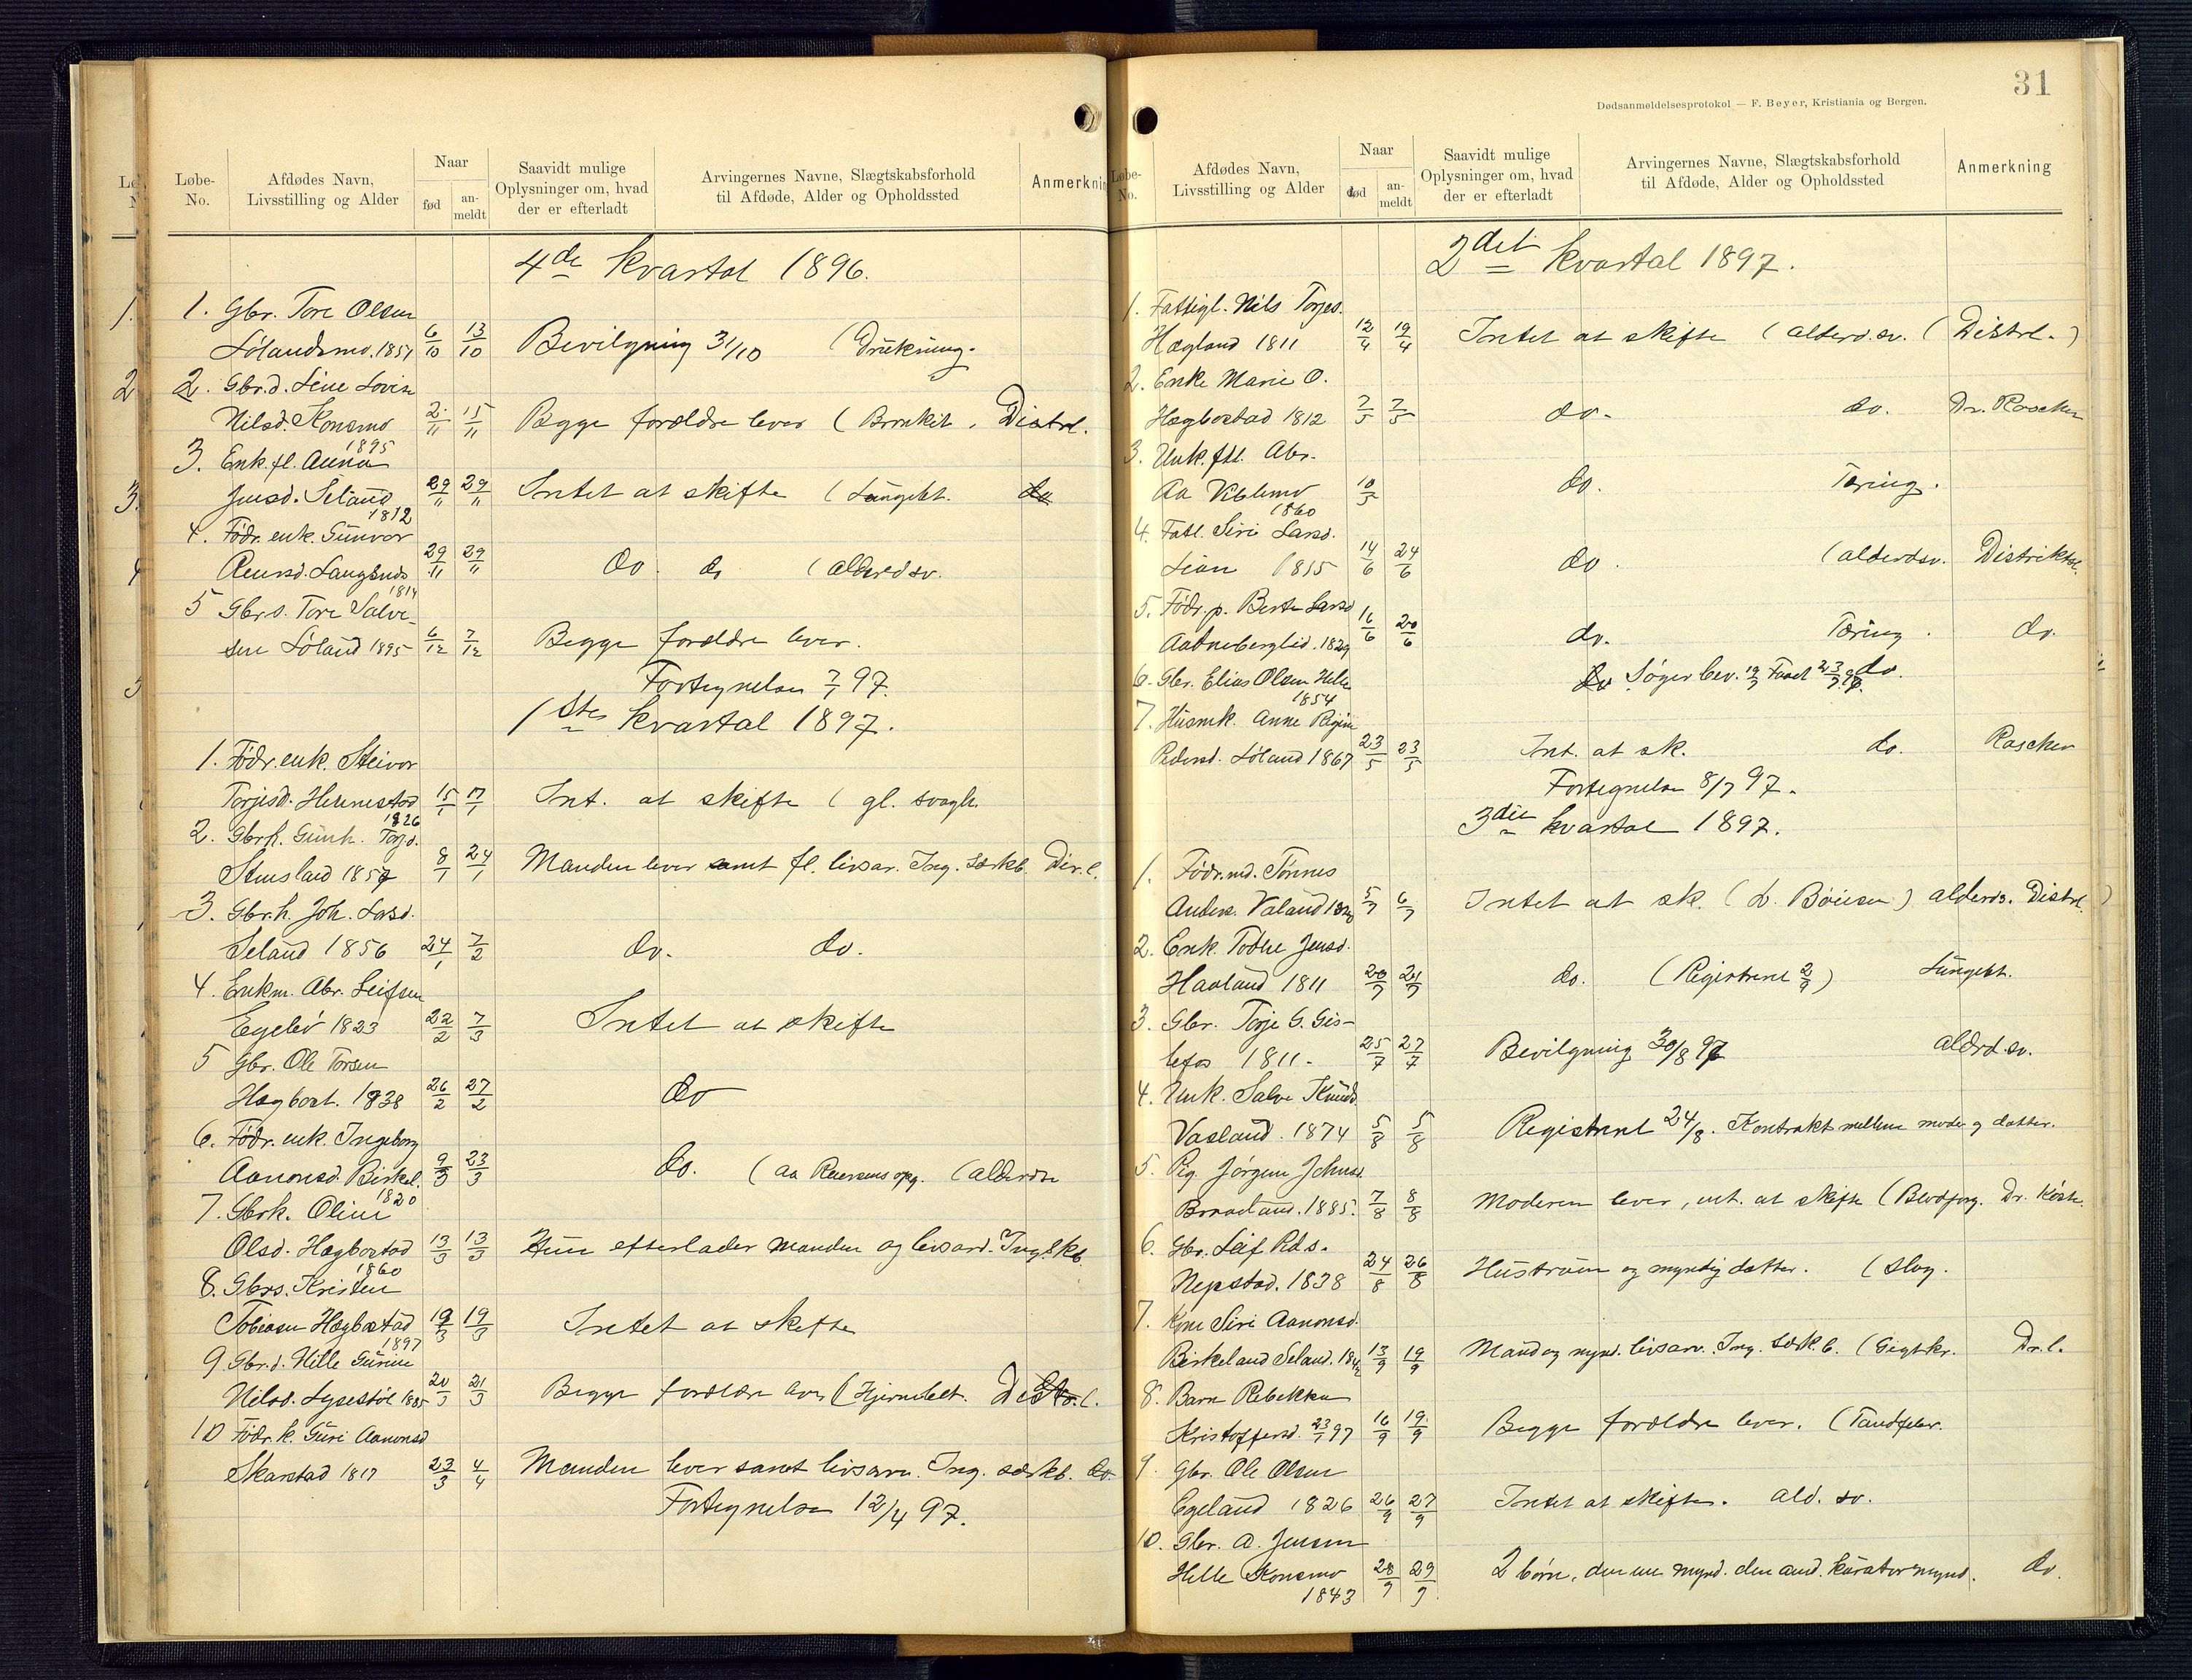 Løbe-
No.
Afdødes Navn,
Livsstilling og Alder
Naar
fød
an-
meldt
Saavidt mulige
Oplysninger om, hvad
der er efterladt
Arvingernes Navne, Slægtskabsforhold
til Afdøde, Alder og Opholdssted
Anmerknin
4de kvartal 1896.
1. Gbr. Tore Olsen
Lølandsmo. 1851 6/10 13/10 Bevilgning 31/10 (Drukning.
2. Gbr.d. Line Lovise
Nilsd. Konsmo 2/11 15/11 Begge forældre lever (Bronkit. Distrl.
1895
3. Enk. fl. Anna
Jensd. Seland 29/11 29/11 Intet at skifte (Lungebt. do
1812
4. Födr. enk. Gunvor
29/11 29/11 do. do (alderdsv.
1814
5 Gbrs. Tore Salve-
sen Löland 1895 6/12 7/12 Begge forældre lever.
Fortegnelse 7/1 97.
1ste kvartal 1897.
1. Födr. enk. Steinvor
Torjesd. Hennestad 15/1 17/1 Int. at skifte ( gl. svagh.
1826
2. Gbrh. Gunh. Torjd.
Stensland 1857 8/1 24/1 Manden lever samt fl. livsar. Ing. særkb. Dir. l.
3. Gbr.h. Joh. Lasd.
Seland 1856 24/1 7/2 do. do.
4. Enkm. Abr. Leifsen
Egelö 1823 22/2 7/3 Intet at skifte
5 Gbr. Ole Torsen
Hægbost. 1838 26/2 27/2 do
6. Födr. enk. Ingeborg
Aanonsd. Birkel. 9/3 23/3 do. (aa Reersens opg. (alderdsv
1820
7. Gbrk. Oline
Olsd. Hægbostad 13/3 13/3 Hun efterlader manden og livsarv. Ing. skb.
1860
8. Gbrs. Kristen
Tobiasen Hægbostad 19/3 19/3 Intet at skifte
1897
9 Gbr.d. Hille Gurine
Nilsd. Lysestöl 1885 20/3 21/3 Begge forældre lever (Hjernebet. Distr. l.
10 Födr. k. Guri Aanonsd
Skarstad 1817 23/3 4/4 Manden lever samt livsarv. Ing. særkb. do.
Fortegnelse 12/4 97.
31
Dødsanmeldelsesprotokol — F. Beyer, Kristiania og Bergen.
Løbe-
No.
Afdødes Navn,
Livsstilling og Alder
Naar
død
an-
meldt
Saavidt mulige
Oplysninger om, hvad
der er efterladt
Arvingernes Navne, Slægtskabsforhold
til Afdøde, Alder og Opholdssted
Anmerkning
2det kvartal 1897.
1. Fattigl. Nils Torjes.
Hægland 1811 12/4 19/4 Intet at skifte (alderd.sv. (Distrl.)
2. Enke Marie O.
Hægbostad 1812 7/5 7/5 do. do. Dr. Roscher
3. Unk. ftl. Abr.
Aa 10/5 do. Tæring.
1860
4. Fatl. Siri Larsd.
Lian 1815 14/6 24/6 do. (alderdsv. Distriktsl.
5. Födr. p. Berte Larsd
1829 16/6 20/6 do. Tæring. do.
6. Gbr. Elias Olsen Helle do Søger bev. 19/7 Faaet 23/7 97. do.
1854
7. Husmk. Anne Regine
Pedersd. Löland 1867 23/5 23/5 Int. at sk. do. Roscher
Fortegnelse 8/7 97.
3die kvartal 1897.
1. Födr.md. Tönnes
Anders. Valand 5/7 6/7 Intet at sk. (L. Böiesen) alderds. Distrl.)
2. Enk. Todne Jensd.
Haaland 1811 20/7 21/7 do. (Registreret 2/9) Lungebt.
3. Gbr. Torje G. Gis-
lefos 1811. 25/7 27/7 Bevilgning 30/8 97 aldrd.sv.
4. Unk. Salve Knuds
Vasland. 1874 5/8 5/8 Registreret 24/8. Kontrakt mellem moder og datter.
5. Pig. Jörgine Johnsd.
Braaland. 1885. 7/8 8/8 Moderen lever, int. at skifte (Blodforg. Dr.
6. Gbr. Leif Reds.
Nepstad. 1838 24/8 26/8 Hustruen og myndig datter. (Slag.
7. Kone Siri Aanonsd.
Birkeland Seland. 13/9 19/9 Mand og mynd. livsarv. Ing. særk.b. (Gigtkr. Dr. l.
8. Barn Rebekka
Kristoffersd. 23/1 97 16/9 19/9 Begge forældre lever. (Tandfeber.
9. Gbr. Ole Olsen
Egeland 1826 26/9 27/9 Intet at skifte. ald. sv.
10. Gbr. A. Jensen
Helle Konsmo 28/9 29/9 2 børn, den ene mynd. den and. kuratormynd. do.
1843